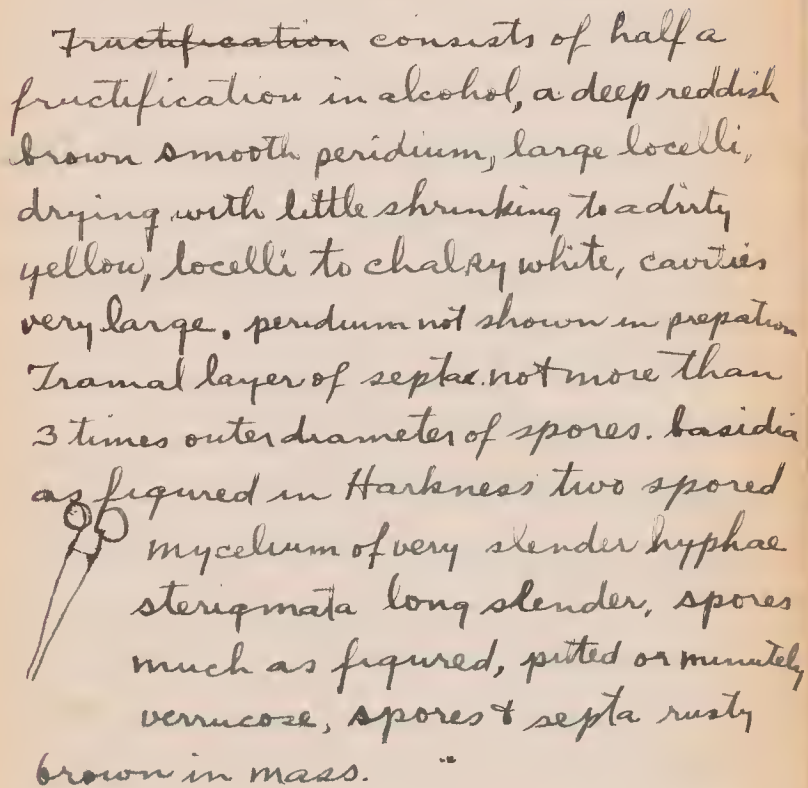 Fructification consists of half a
fructification in alcohol, a deep reddish
brown smooth peridium, large locelli,
drying with little shrinking to a dirty
yellow, locelli to chalky white, cavities
very large. peridium not shown in prepation
Tramal layer of septae not more than
3 times outer diameter of spores. basidia
as figured in Harkness two spored
mycelium of very slender hyphae
sterigmata long slender, spores
much as figured, pitted or minutely
verrucose, spores & septa rusty
brown in mass.